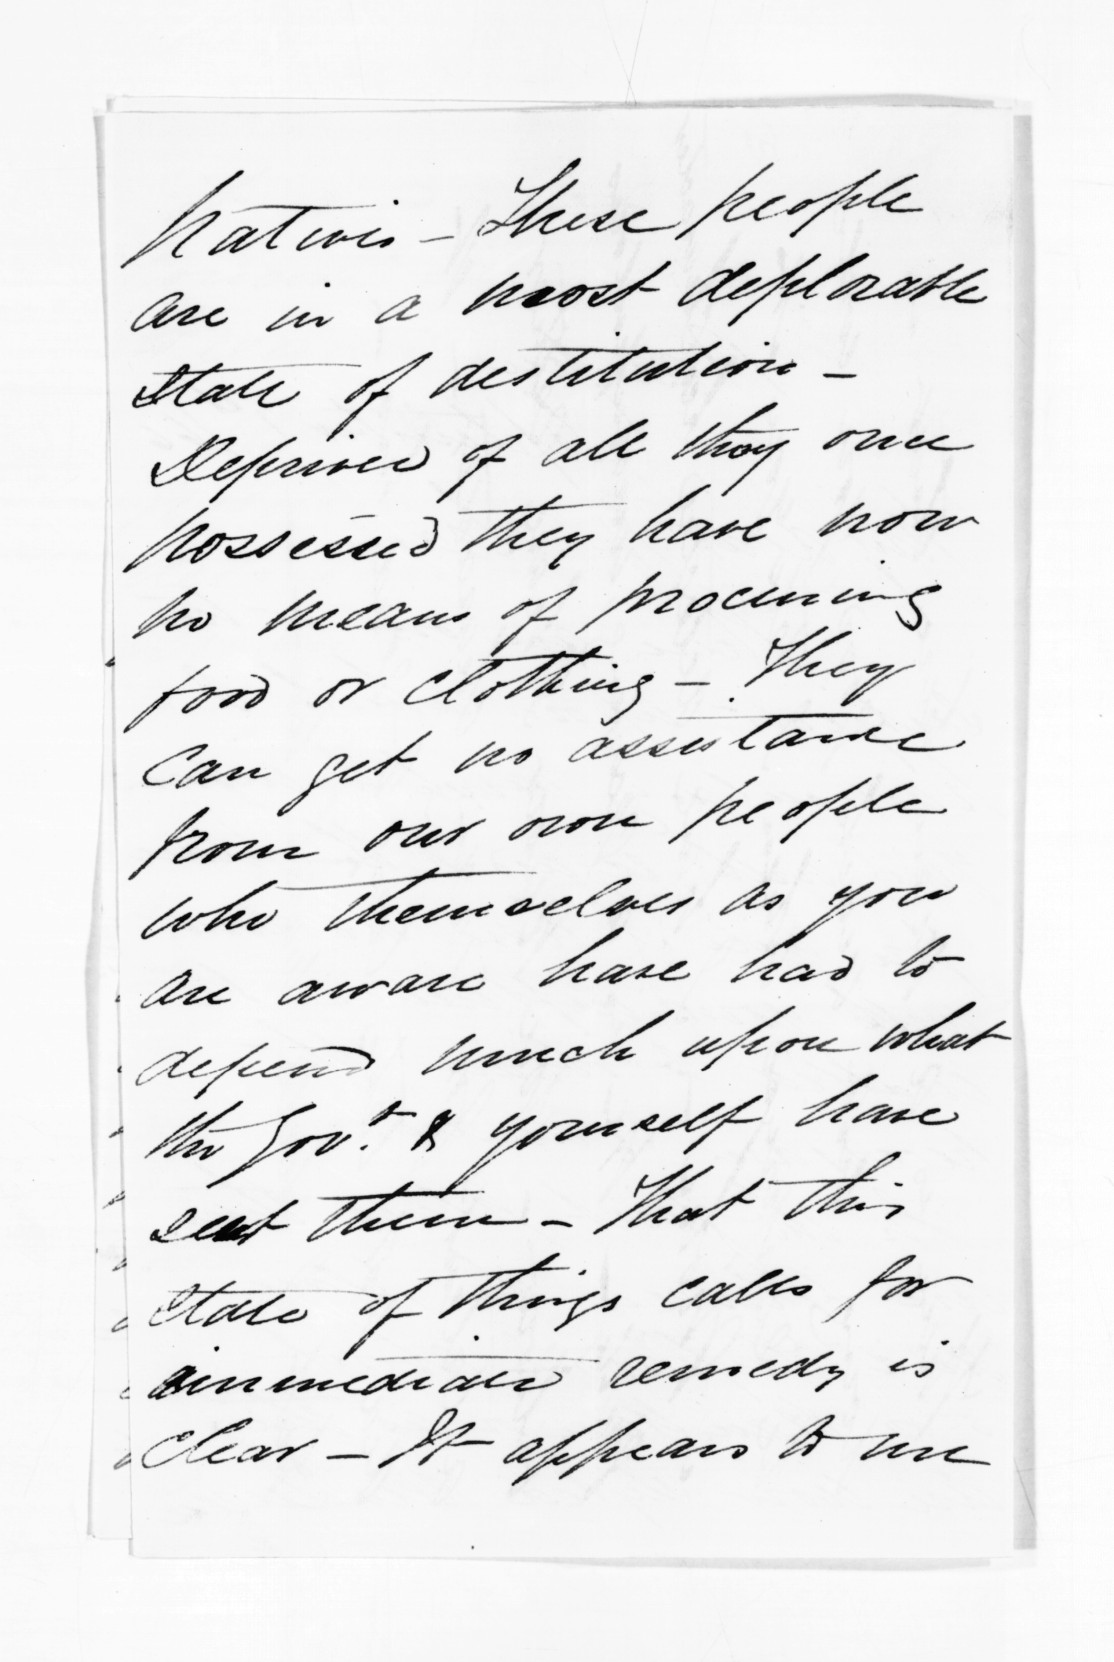 Natives – These people
are in a most deplorable
State of destitution –
Deprived of all they once
possessed they have now
no means of procuring
food or clothing – They
can get no assistance
from our own people
who themselves as you
are aware have had to
depend much upon what
the Govt. & yourself have
sent them – That this
state of things calls for
immediate remedy is
clear – It appears to me